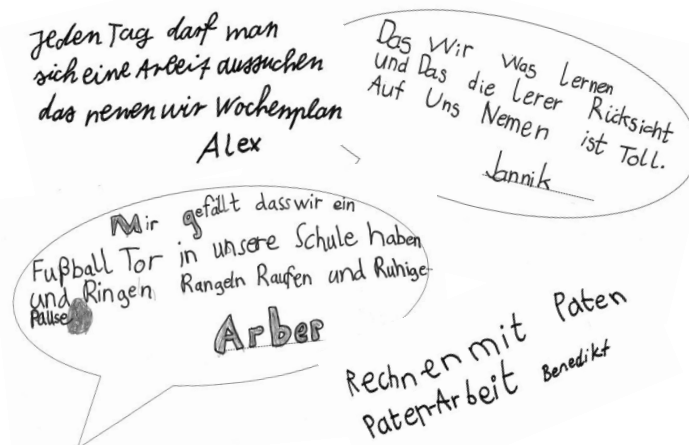 Jeden Tag darf man
sich eine Arbeit aussuchen
das nenen wir Wochenplan
Alex
Das Wir Was Lernen
und Das die Lerer Rücksicht
Auf Uns Nemen ist Toll.
Jannik
Mir gefällt dass wir ein
Fußball Tor in unsere Schule haben
und Ringen Rangeln Raufen und Ruhige
Pause
Arber
Rechnen mit Paten
Paten-Arbeit Benedikt